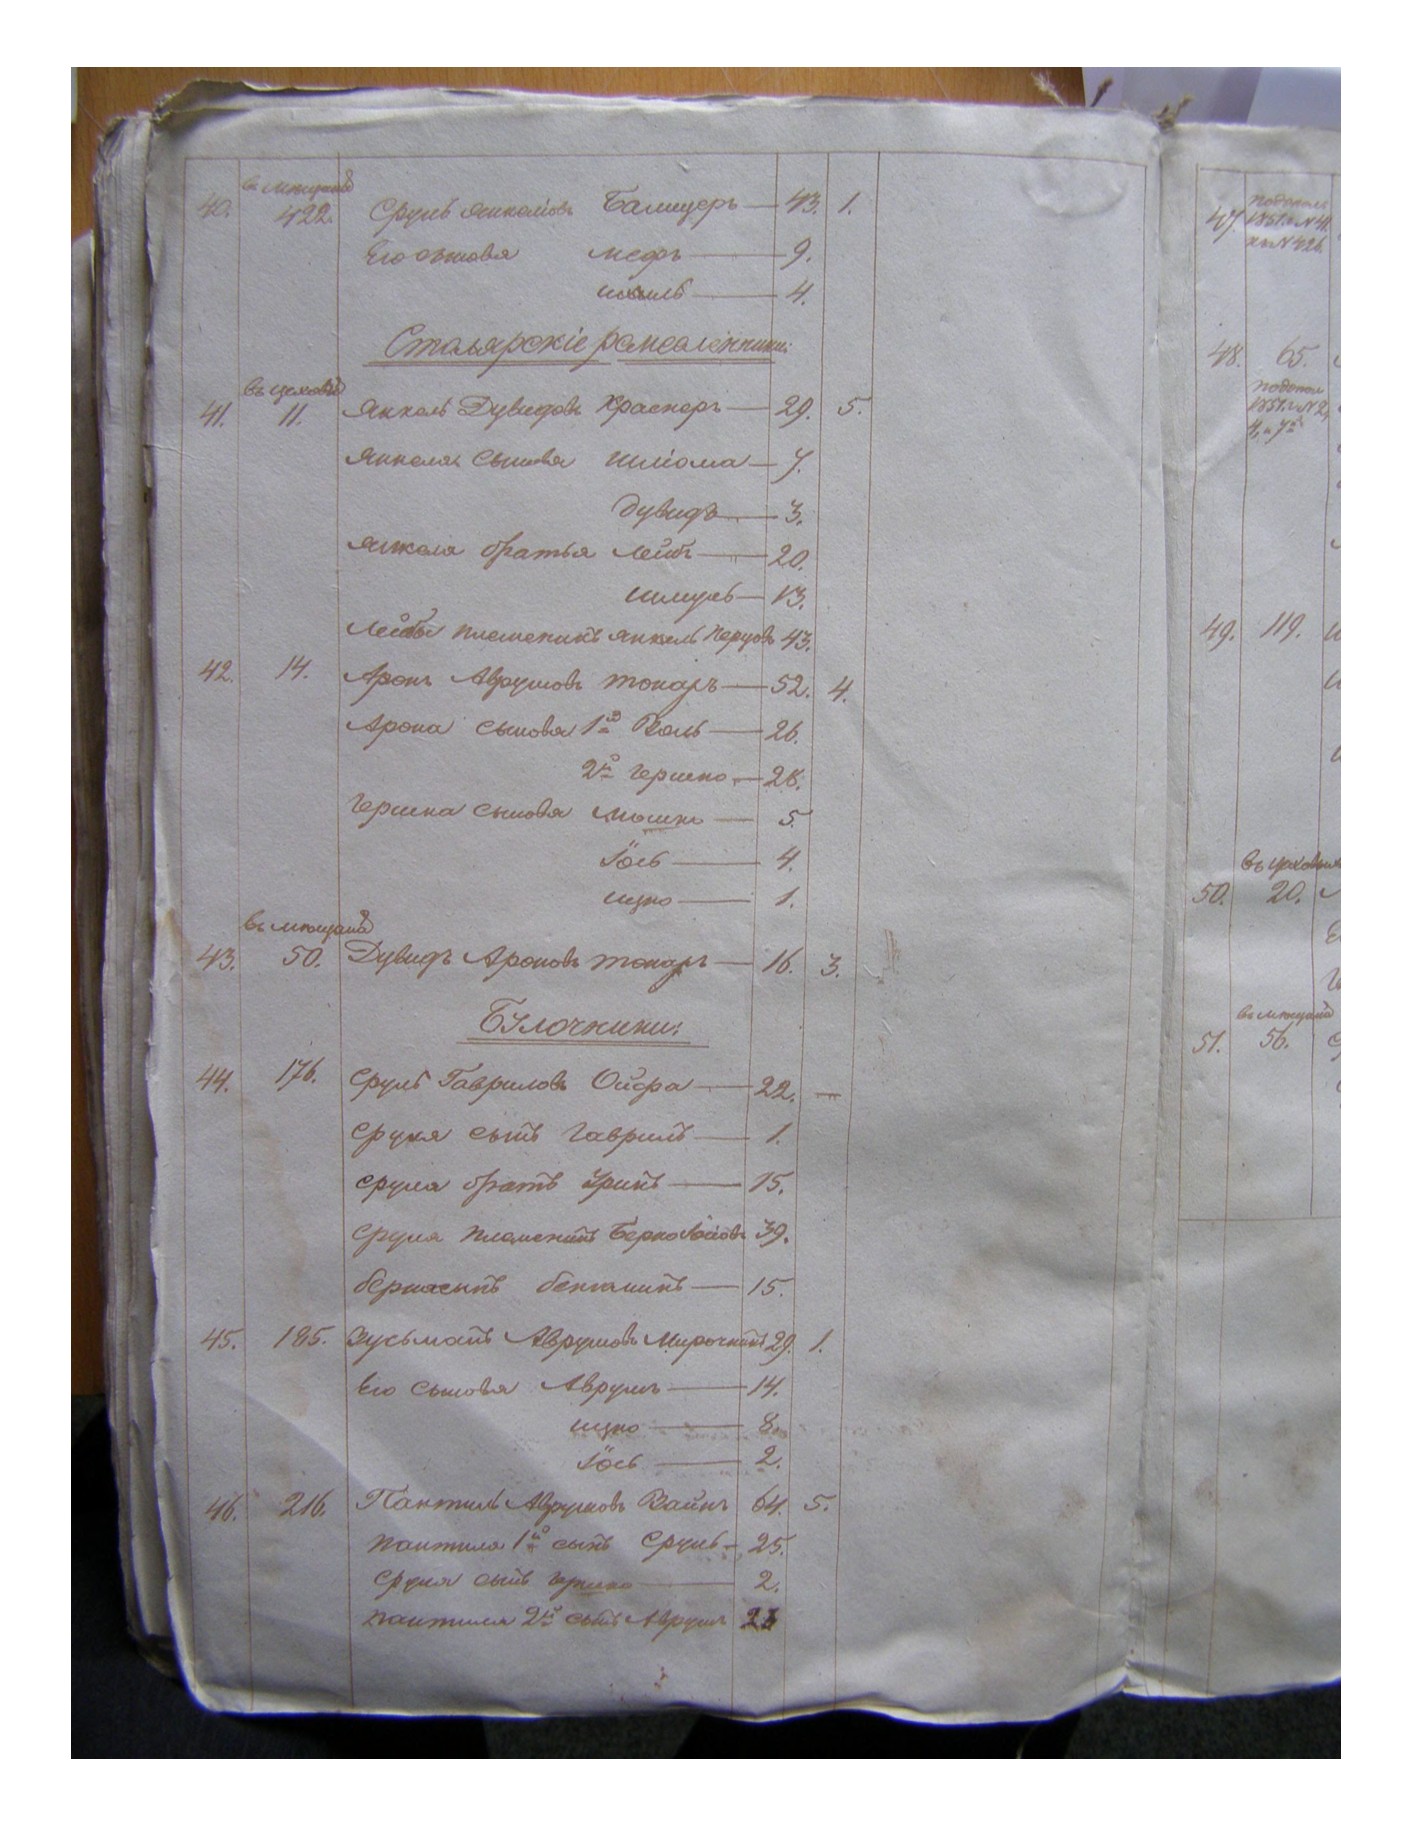 въ мѣщанѣ
40. 422. Сруль Янкелiовъ Балицеръ — 43. 1.
Его сыновя Мееръ — 9.
4.
Столярскіе ремесленники:
въ цеховѣ
41. 11. Янкель Дувидовъ Краснеръ — 29. 5.
Янкеля сыновя Шліома — 7.
Дувидъ — 3.
Янкеля братья Лейбъ — 20.
Шмуль — 13.
Лейбы племеникъ Янкель Перцовъ 43.
42. 14. Аронъ Аврумовъ Токаръ — 52. 4.
Арона сыновя 1й Волъ — 26.
2й Гершко — 28.
Гершка сыновя Мошко — 5.
Іось — 4.
Ицко — 1.
въ мѣщанѣ
43. 50. Дувидъ Ароновъ Токаръ — 16. 3.
Булочники:
44. 176. Сруль Гавриловъ Ойфа — 22. —
Сруля сынъ Гаврилъ — 1.
Сруля братъ Уринъ — 15.
Сруля племеникъ Берко 39.
Берка сынъ Беніаминъ — 15.
45. 185. Зусьманъ Аврумовъ Мирочникъ 29. 1.
Его сыновя Аврумъ — 14.
Ицко — 8.
Іось — 2.
46. 216. Пантиль Аврумовъ Вайнъ 64. 5.
Пантиля 1й сынъ Сруль — 25.
Сруля сынъ Гершко — 2.
Пантиля 2й сынъ Аврумъ
47.
1851. №
и №426.
48. 65.
1851. №2,
49. 119.
въ цеховыхъ
50. 20.
въ мѣщанѣ
51. 56.